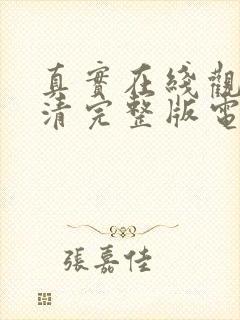 真實在綫觀
清完整版電
張嘉佳